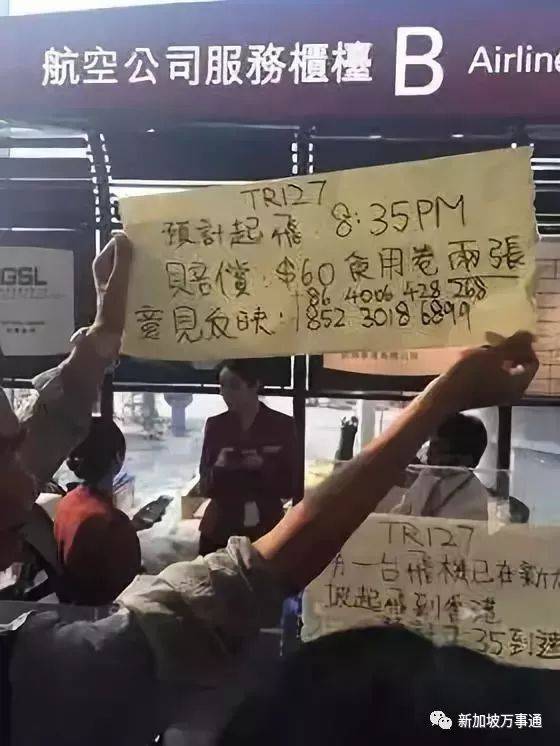 航空公司服務櫃檯 B Airline
TR127
預計起飛：8:35PM
賠償：$60 食用卷兩張
+86 4006 428 268
意見反映：+852 3018 6899
GSL
TR127
有一台飛機已在新加
坡起飛到香港
35到達
新加坡万事通